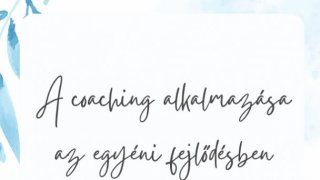 A coaching alkalmazása
az egyéni fejlődésben